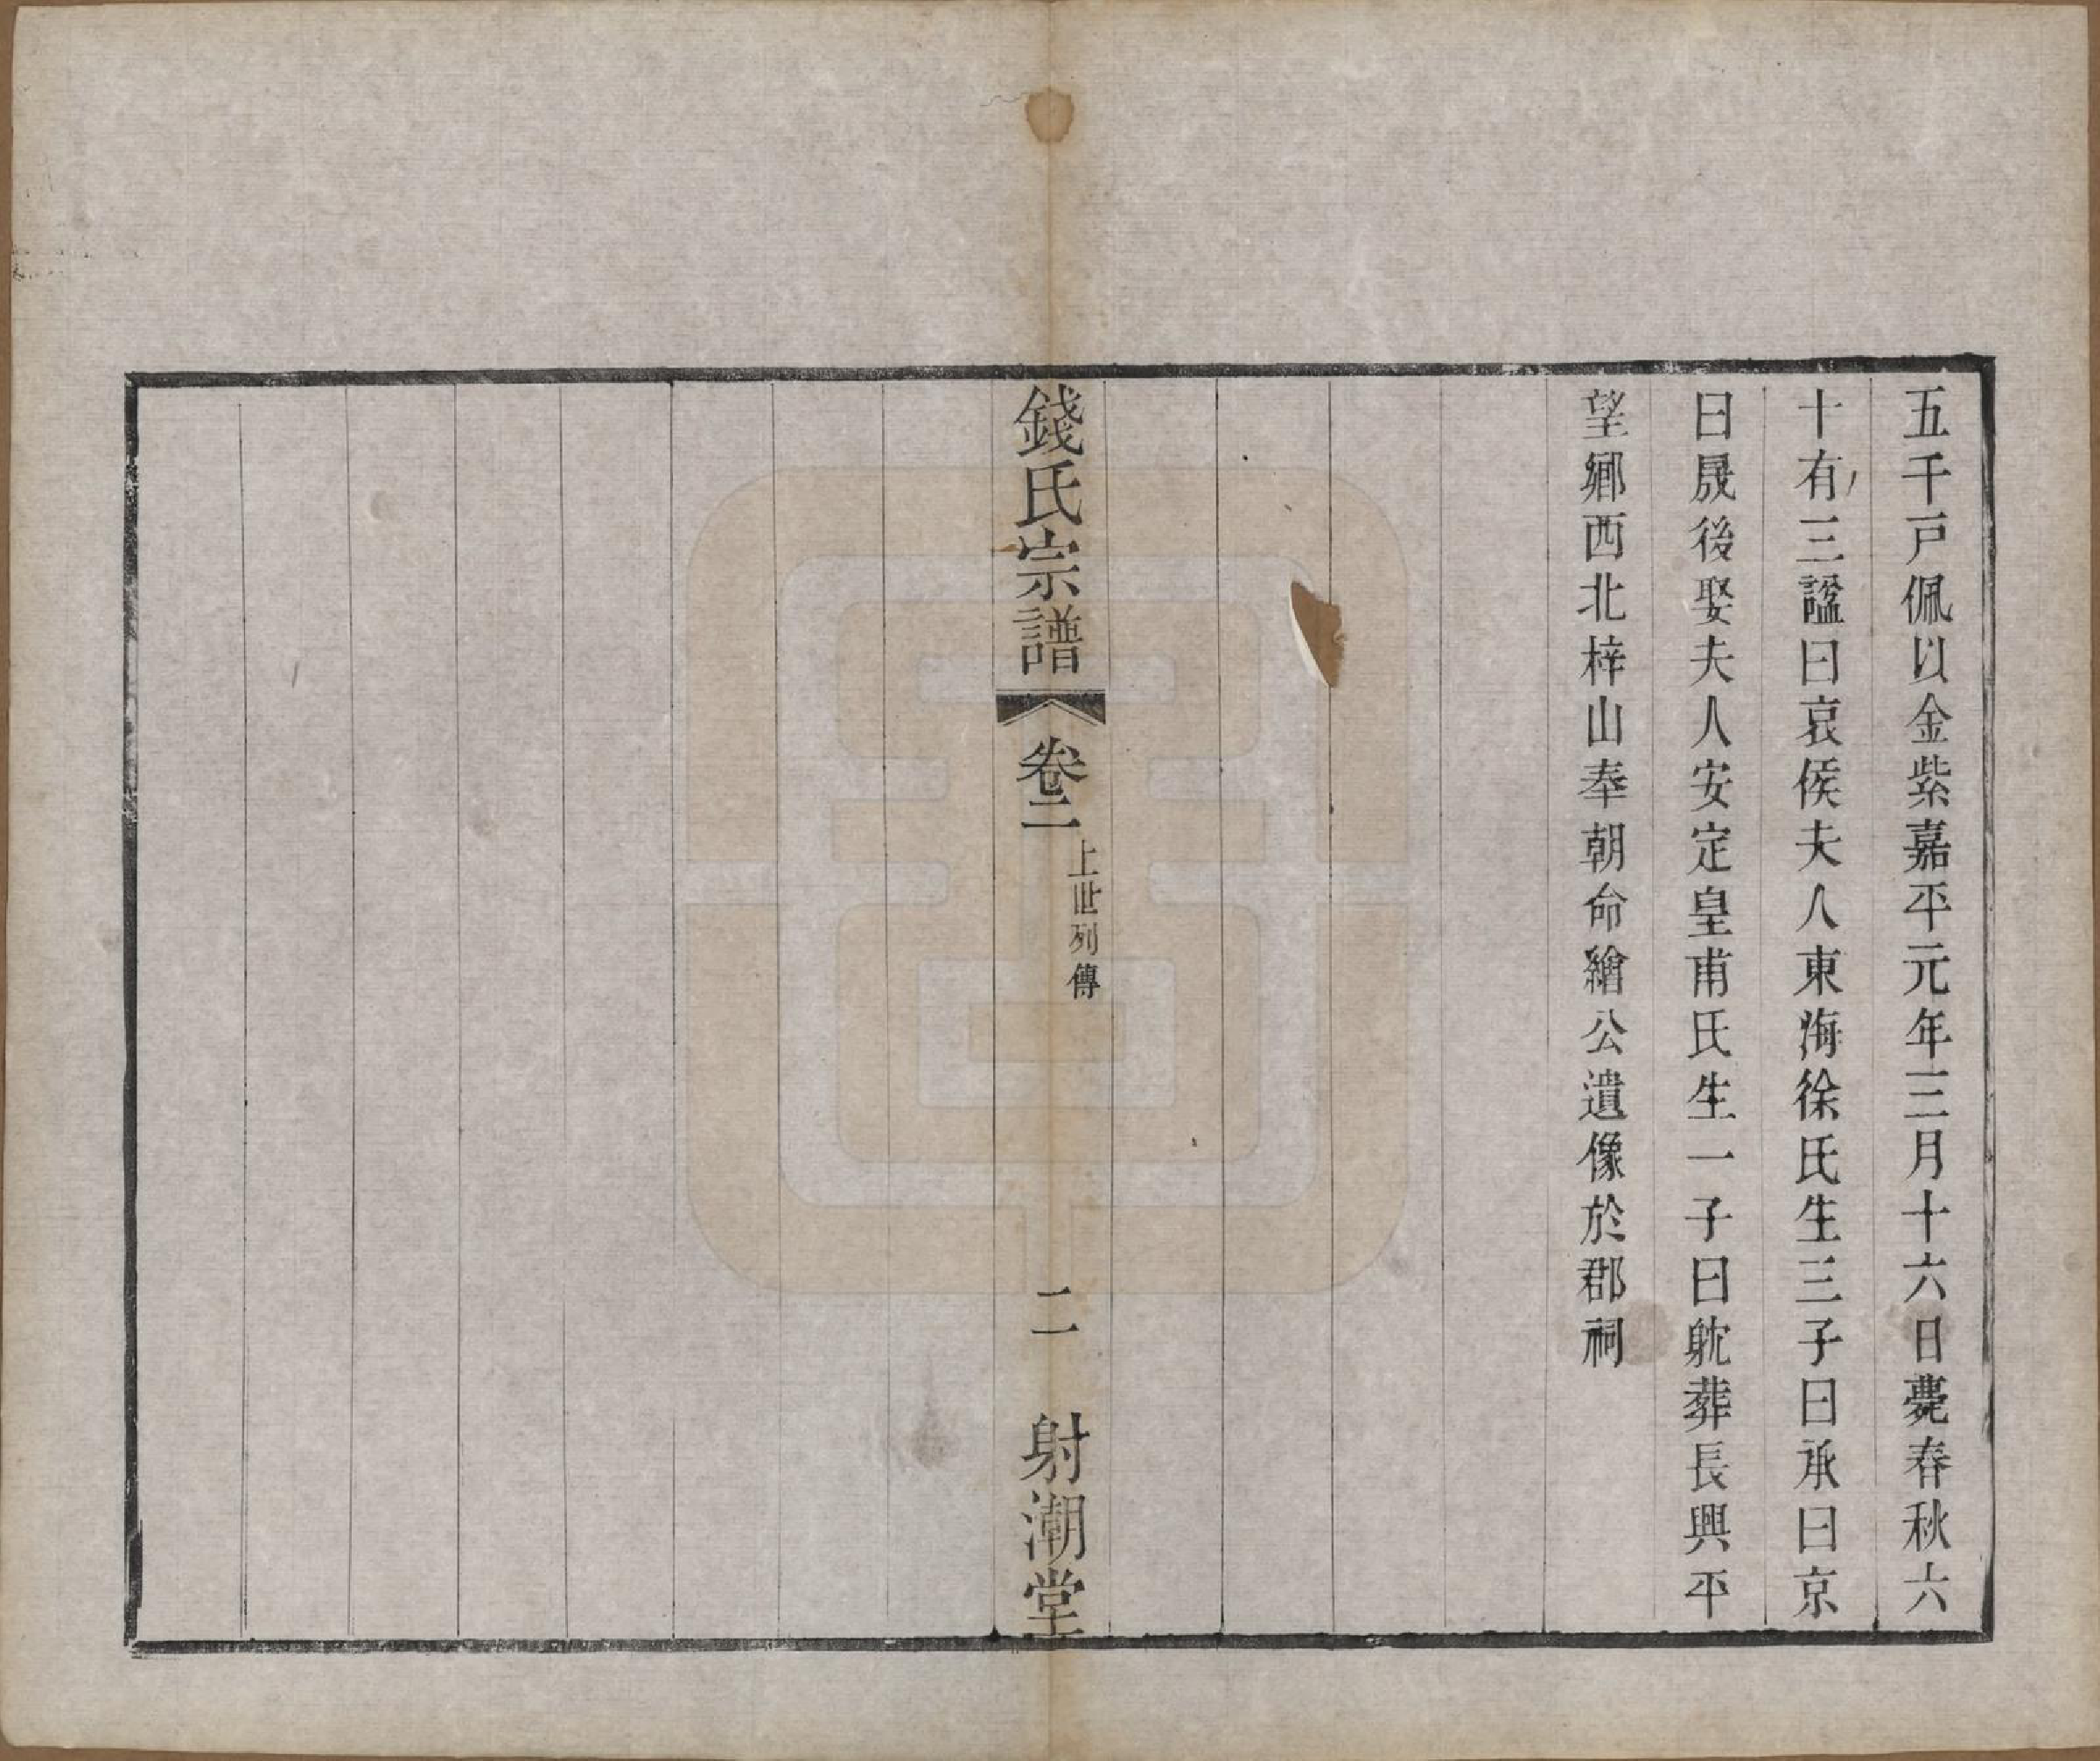 五千戸佩以金紫嘉平元年三月十六日薨春秋六
十有三諡曰哀侯夫人東海徐氏生三子曰承曰京
曰晟後娶夫人安定皇甫氏生一子曰躭葬長興平
望鄉西北梓山奉朝命繪公遺像於郡祠
錢氏宗譜
卷二
上世列傳
二
射潮堂